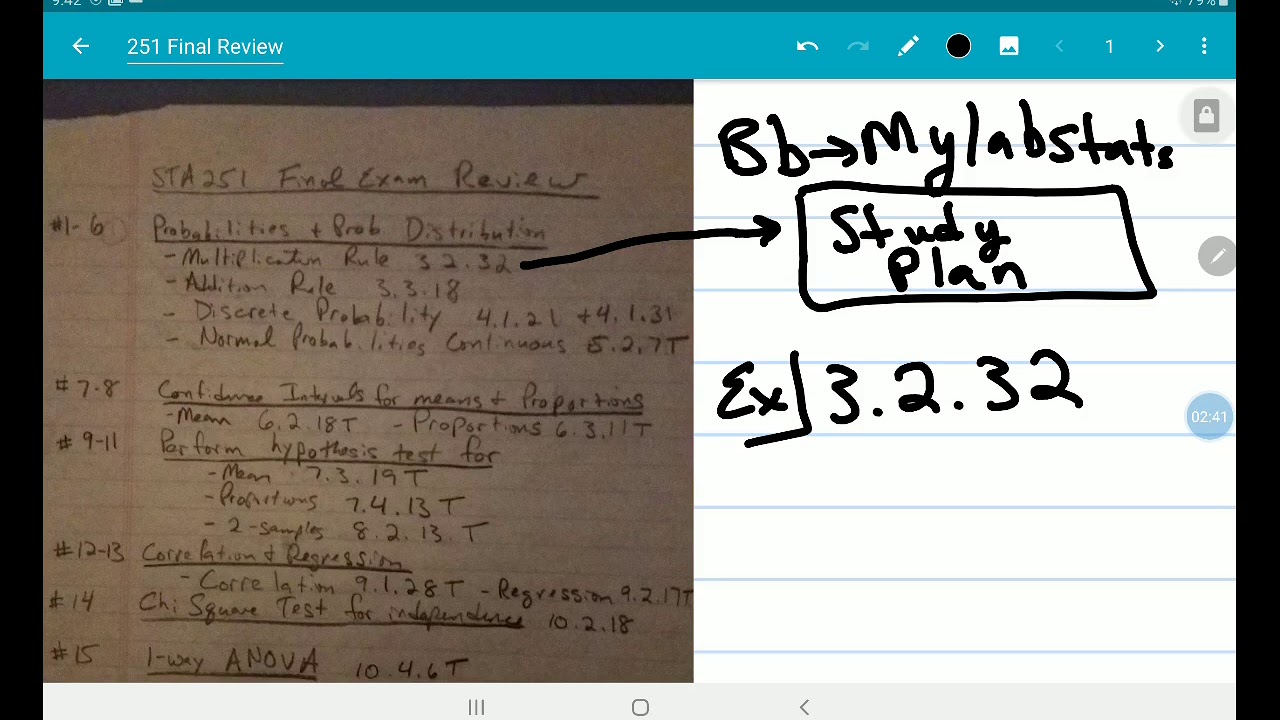 9:42 79%
251 Final Review 1
STA251 Final Exam Review
#1-6 Probabilities + Prob Distribution
- Multiplication Rule 3.2.32
- Addition Rule 3.3.18
- Discrete Probability 4.1.21 + 4.1.31
- Normal Probabilities Continuous 5.2.7T
#7-8 Confidence Intervals for means + Proportions
- Mean 6.2.18T - Proportions 6.3.11T
#9-11 Perform hypothesis test for
- Mean 7.3.19T
- Proportions 7.4.13T
- 2-samples 8.2.13T
#12-13 Correlation + Regression
- Correlation 9.1.28T - Regression 9.2.17T
#14 Chi Square Test for independence 10.2.18
#15 1-way ANOVA 10.4.6T
Bb→Mylabstats
Study
Plan
Ex 3.2.32
02:41